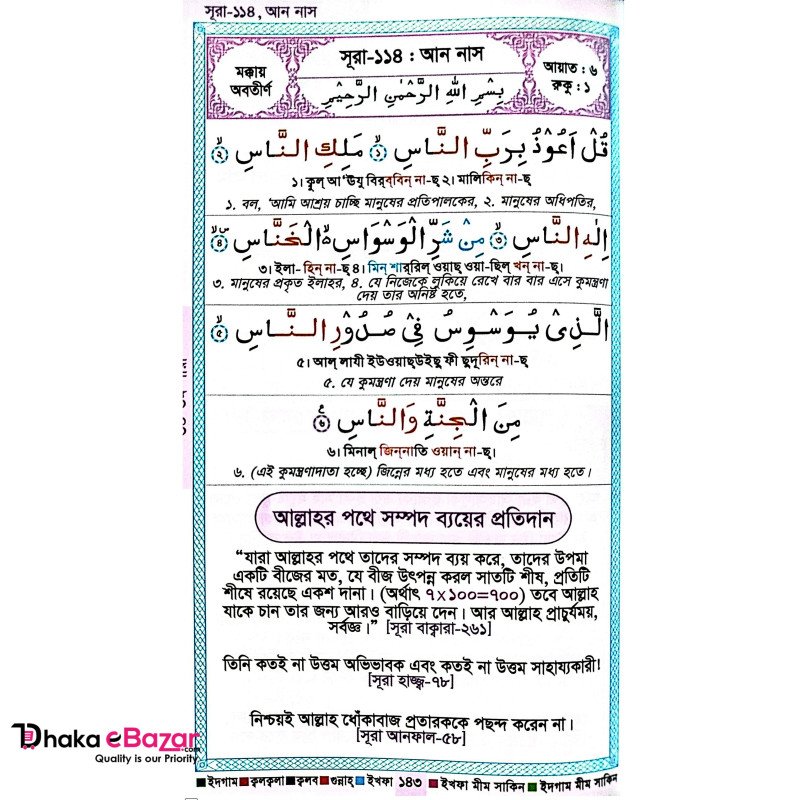 সূরা-১১৪, আন নাস
মক্কায়
অবতীর্ণ
সূরা-১১৪ : আন নাস
بِسْمِ اللّٰهِ الرَّحْمٰنِ الرَّحِيْمِ
আয়াত : ৬
রুকু : ১
قُلْ اَعُوْذُ بِرَبِّ النَّاسِ ۙ﴿١﴾ مَلِكِ النَّاسِ ۙ﴿٢﴾
১। কুল্ আ'ঊযু বিরব্বিন্ না-ছ্ ২। মালিকিন্ না-ছ্
১. বল, 'আমি আশ্রয় চাচ্ছি মানুষের প্রতিপালকের, ২. মানুষের অধিপতির,
اِلٰهِ النَّاسِ ۙ﴿٣﴾ مِنْ شَرِّ الْوَسْوَاسِ ەۙ الْخَنَّاسِ ۪ۙ﴿٤﴾
৩। ইলা-হিন্ না-ছ্ ৪। মিন্ শার্‌রিল্ ওয়াছ্ ওয়া-ছিল্ খন্ না-ছ্।
৩. মানুষের প্রকৃত ইলাহর, ৪. যে নিজেকে লুকিয়ে রেখে বার বার এসে কুমন্ত্রণা
দেয় তার অনিষ্ট হতে,
الَّذِىْ يُوَسْوِسُ فِىْ صُدُوْرِ النَّاسِ ۙ﴿٥﴾
৫। আল্ লাযী ইউওয়াছ্উইছু ফী ছুদূরিন্ না-ছ্
৫. যে কুমন্ত্রণা দেয় মানুষের অন্তরে
مِنَ الْجِنَّةِ وَالنَّاسِ ۧ﴿٦﴾
৬। মিনাল্ জিন্নাতি ওয়ান্ না-ছ্।
৬. (এই কুমন্ত্রণাদাতা হচ্ছে) জিন্নের মধ্য হতে এবং মানুষের মধ্য হতে।
আল্লাহর পথে সম্পদ ব্যয়ের প্রতিদান
“যারা আল্লাহর পথে তাদের সম্পদ ব্যয় করে, তাদের উপমা
একটি বীজের মত, যে বীজ উৎপন্ন করল সাতটি শীষ, প্রতিটি
শীষে রয়েছে একশ দানা। (অর্থাৎ ৭×১০০=৭০০) তবে আল্লাহ
যাকে চান তার জন্য আরও বাড়িয়ে দেন। আর আল্লাহ প্রাচুর্যময়,
সর্বজ্ঞ।” [সূরা বাক্বারা-২৬১]
তিনি কতই না উত্তম অভিভাবক এবং কতই না উত্তম সাহায্যকারী!
[সূরা হাজ্ব-৭৮]
নিশ্চয়ই আল্লাহ ধোঁকাবাজ প্রতারককে পছন্দ করেন না।
[সূরা আনফাল-৫৮]
Dhaka eBazar.com
Quality is our Priority
ইদগাম ক্বলক্বলা ক্বলব গুন্নাহ্ ইখফা ১৪৩ ইখফা মীম সাকিন ইদগাম মীম সাকিন